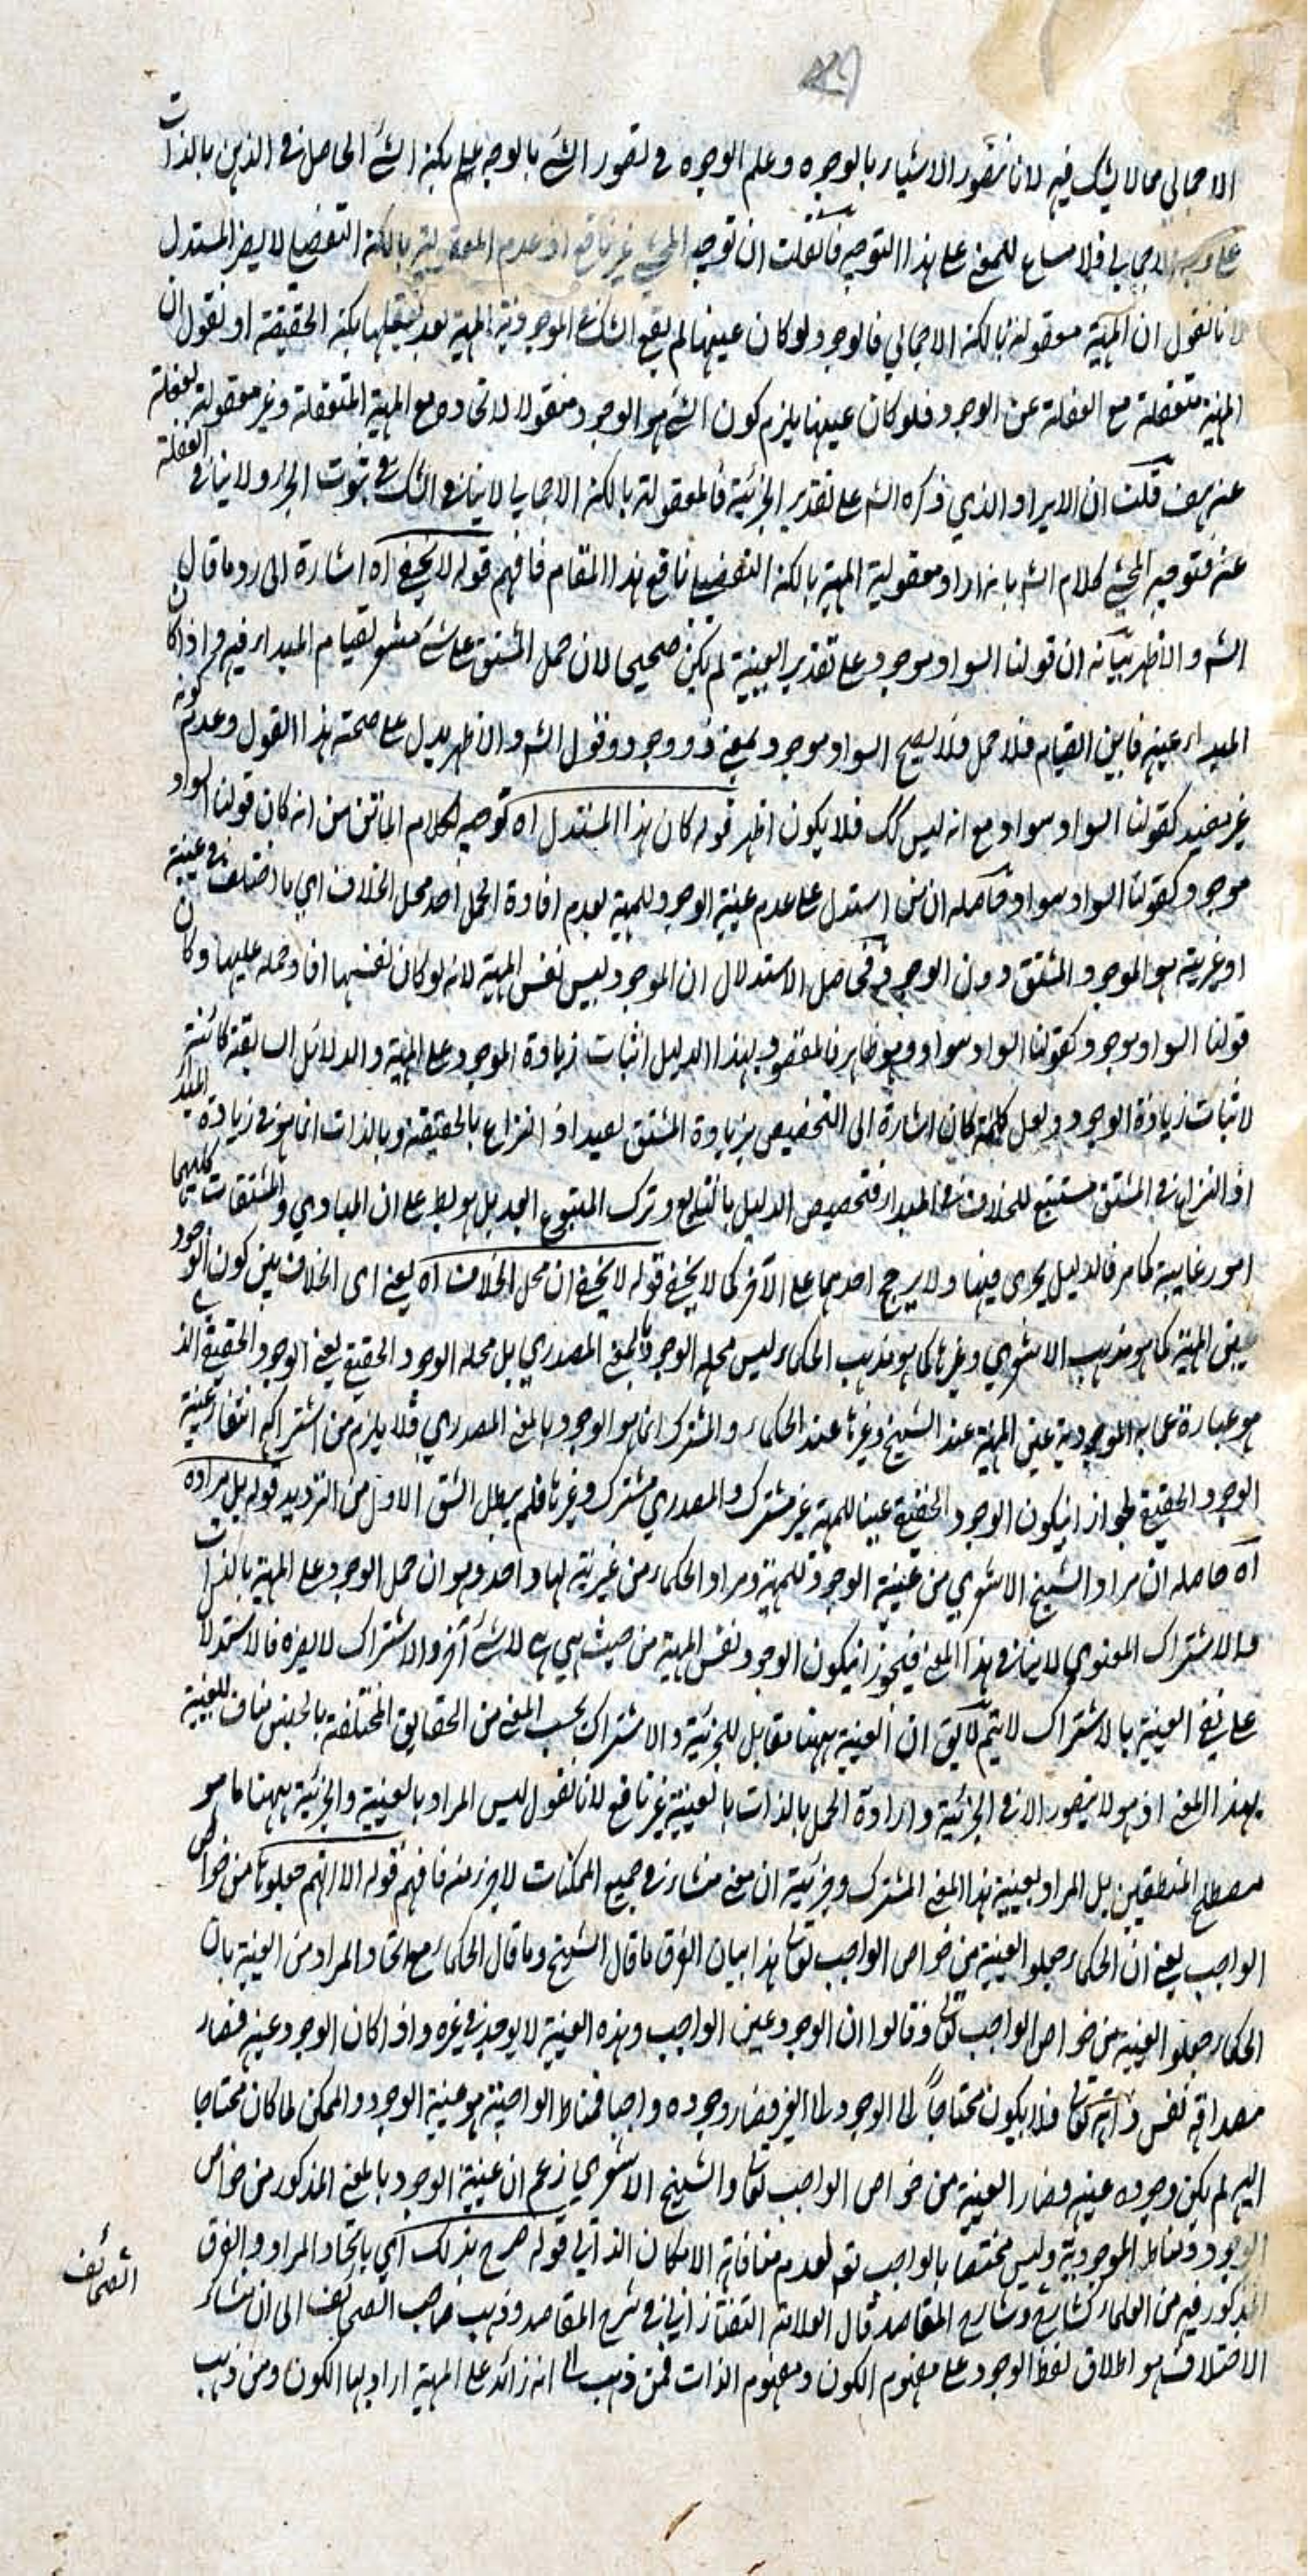 الاجمالي مما لا يشك فيه لانا نتصور الاشياء بالوجوه وعلم الوجوه في تصور الشئ بالوجه علم بكنه الشئ الحاصل في الذهن بالذات
الاجمالي فلا مساغ للمنع على هذا التوجيه فان قلت ان توجيه المحشي غير نافع اذ عدم المعقولية بالكنه التفصيلي لا يضر المستدل
لانا نقول ان المهية معقولة بالكنه الاجمالي فالوجود لو كان عينها لم يقع الشك في الموجودية المهية بعد تعقلها بكنه الحقيقة او نقول ان
المهية متعقلة مع الغفلة عن الوجود فلو كان عينها يلزم كون الشئ هو الوجود معقولا لاتحاده مع المهية المتعقلة وغير معقول للغفلة
عنه هف قلت ان الايراد الذي ذكره الشم على تقدير الجزئية فالمعقولية بالكنه الاجمالي لا ينافي الشك في ثبوت الجزء ولا ينافي الغفلة
عنه فتوجيه المحشي كلام الشم بانه اراد معقولية المهية بالكنه التفصيلي نافع هذا المقام فافهم قوله لا يخفى اه اشارة الى رد ما قال
الشم والاظهر بيانه ان قولنا السواد موجود على تقدير العينية لم يكن صحيحا لان حمل المشتق على شئ مشعر بقيام المبداء فيه واذا كان
المبداء عينه فاين القيام فلا حمل فلا يصح السواد موجود بمعنى ذو وجود وقول الشم والاظهر يدل على صحة هذا القول وعدم كونه
غير مفيد كقولنا السواد سواد مع انه ليس كك فلا يكون اظهر قوله كان هذا المستدل اه توجيه لكلام الماتن من انه كان قولنا السواد
موجود كقولنا السواد سواد وحاصله ان من استدل على عدم عينية الوجود للمهية بعدم افادة الحمل احد محل الخلاف اي ما اختلف في عينية
او غيريته هو الموجود المشتق دون الوجود فحاصل الاستدلال ان الموجود ليس نفس المهية لانه لو كان نفسها افاد حمله عليها وكان
قولنا السواد موجود كقولنا السواد سواد وهو ظاهر فالمقصود بهذا الدليل اثبات زيادة الموجود على المهية والدلائل السابقة كائنة
لاثبات زيادة الوجود ولعل كلمة كان اشارة الى التخصيص بزيادة المشتق بعيد اذ النزاع بالحقيقة وبالذات انما هو في زيادة المبداء
اذ النزاع في المشتق مستتبع للخلاف في المبداء فتخصيص الدليل بالتابع وترك المتبوع ابعد بل هو بط على ان المبادي والمشتقات كليهما
امور غايبة كما مر فالدليل يجري فيها ولا يرجح احدهما على الآخر كما لا يخفى قوله لا يخفى ان محل الخلاف اه يعني اى الخلاف بين كون الوجود
عين المهية كما هو مذهب الاشعري وغيرها كما هو مذهب الحكماء ليس محله الوجود بالمعنى المصدري بل محله الوجود الحقيقي يعني الوجود الحقيقي الذي
هو عبارة عما به الموجودية عين المهية عند الشيخ وغيرها عند الحكماء والمشترك انما هو الوجود بالمعنى المصدري فلا يلزم من اشتراكه انتفاء عينية
الوجود الحقيقي لجواز ان يكون الوجود الحقيقي عينا للمهية غير مشترك والمصدري مشترك وغيرها فلم يبطل الشق الاول من الترديد قوله بل مراده
اه حاصله ان مراد الشيخ الاشعري من عينية الوجود للمهية ومراد الحكماء من غيريته لها واحد وهو ان حمل الوجود على المهية بالذات
والاشتراك المعنوي لا ينافي هذا المعنى فيجوز ان يكون الوجود نفس المهية من حيث هي هي لا شئ آخر والاشتراك لا يضره فالاستدلال
على نفي العينية بالاشتراك لا يتم لا يق ان العينية ههنا مقابل للجزئية والاشتراك بحسب المعنى من الحقايق المختلفة بالجنس مناف للعينية
بهذا المعنى اذ هو لا يتصور الا في الجزئية وارادة الحمل بالذات بالعينية غير نافع لانا نقول ليس المراد بالعينية والجزئية ههنا ما هو
مصطلح المنطقيين بل المراد بعينية هذا المعنى المشترك وجزئيته ان معنى منشاءه في جميع الممكنات لا جزء منه فافهم قوله الا انهم جعلوها من خواص
الواجب يعني ان الحكماء جعلوا العينية من خواص الواجب تعالى هذا بيان الفرق ما قال الشيخ وما قال الحكماء مع اتحاد المراد من العينية بان
الحكماء جعلوا العينية من خواص الواجب تعالى وقالوا ان الوجود عين الواجب وهذه العينية لا يوجد في غيره واذا كان الوجود عينه فصار
مصداقه نفس ذاته تعالى فلا يكون محتاجا الى الوجود الى الغير فصار وجوده واجبا فمناط الواجبية هو عينية الوجود والممكن لما كان محتاجا
اليه لم يكن وجوده عينه فصار العينية من خواص الواجب تعالى والشيخ الاشعري زعم ان عينية الوجود بالمعنى المذكور من خواص
الوجود ومناط الموجودية وليس مختصا بالواجب تعم لعدم منافاته الامكان الذاتي قوله صرح بذلك اي باتحاد المراد والفرق
المذكور فيه من العلماء كشارح وشارح المقاصد قال العلامة التفتازاني في شرح المقاصد وذهب صاحب الصحائف الى ان منشاء
الاختلاف هو اطلاق لفظ الوجود على مفهوم الكون ومفهوم الذات فمن ذهب الى انه زائد على المهية اراد بها الكون ومن ذهب
الصحائف